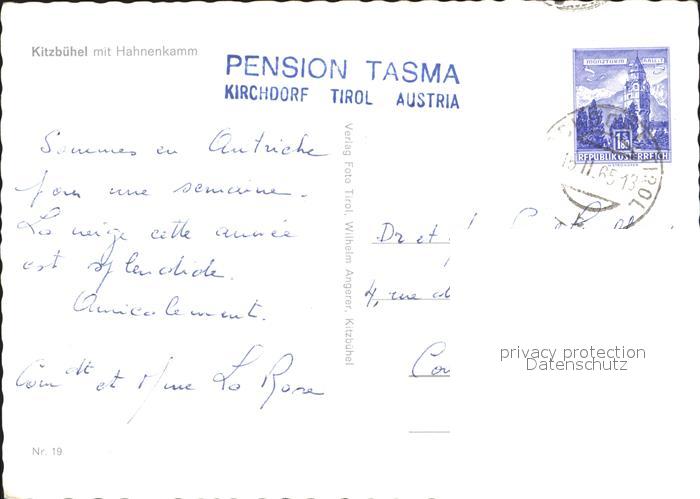 Kitzbühel mit Hahnenkamm
PENSION TASMA
KIRCHDORF TIROL AUSTRIA
Sommes en Autriche
pour une semaine.
La neige cette année
est splendide.
Amicalement.
Comdt et Mme La Rose
Nr. 19
Verlag Foto Tirol, Wilhelm Angerer, Kitzbühel
MÜNZTURM HALL i. T.
1.80
REPUBLIK ÖSTERREICH
15.II.65-13
TIROL
Dr et
4, rue d
privacy protection
Datenschutz